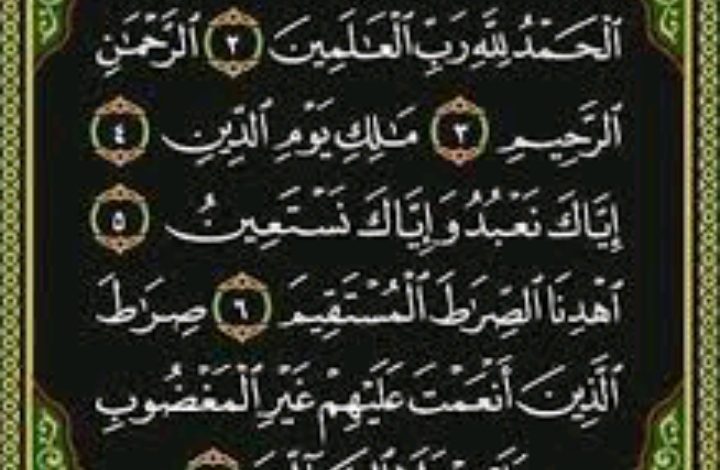 ٱلْحَمْدُ لِلَّهِ رَبِّ ٱلْعَـٰلَمِينَ ٢ ٱلرَّحْمَـٰنِ
ٱلرَّحِيمِ ٣ مَـٰلِكِ يَوْمِ ٱلدِّينِ ٤
إِيَّاكَ نَعْبُدُ وَإِيَّاكَ نَسْتَعِينُ ٥
ٱهْدِنَا ٱلصِّرَٰطَ ٱلْمُسْتَقِيمَ ٦ صِرَٰطَ
ٱلَّذِينَ أَنْعَمْتَ عَلَيْهِمْ غَيْرِ ٱلْمَغْضُوبِ